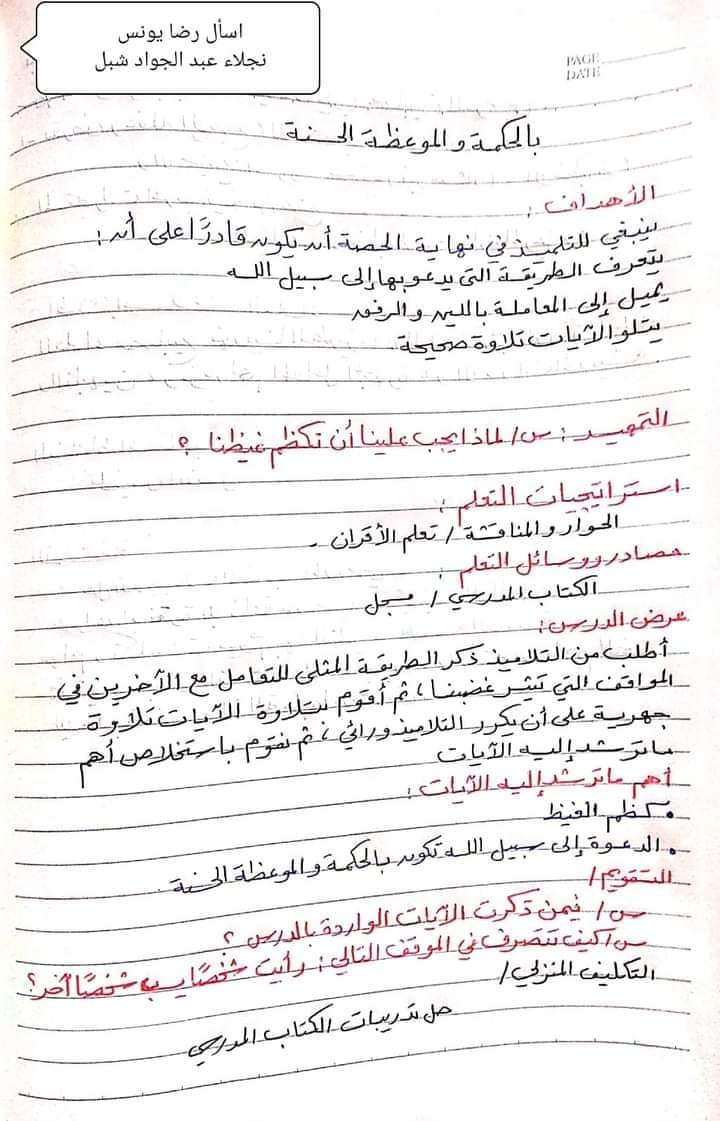 اسأل رضا يونس
نجلاء عبد الجواد شبل
PAGE
DATE
بالحكمة والموعظة الحسنة
الأهداف :
ينبغي للتلميذ في نهاية الحصة أن يكون قادرًا على أن :
يتعرف الطريقة التي يدعو بها إلى سبيل الله
يميل إلى المعاملة باللين والرفق
يتلو الآيات تلاوة صحيحة.
التمهيد : س/ لماذا يجب علينا أن نكظم غيظنا ؟
استراتيجيات التعلم :
الحوار والمناقشة / تعلم الأقران .
مصادر ووسائل التعلم :
الكتاب المدرسي / مسجل
عرض الدرس :
أطلب من التلاميذ ذكر الطريقة المثلى للتعامل مع الآخرين في
المواقف التي تثير غضبنا ، ثم أقوم بتلاوة الآيات تلاوة
جهرية على أن يكرر التلاميذ ورائي ، ثم نقوم باستخلاص أهم
ما ترشد إليه الآيات
أهم ما ترشد إليه الآيات :
• كظم الغيظ
• الدعوة إلى سبيل الله تكون بالحكمة والموعظة الحسنة .
التقويم /
س/ فيمن ذكرت الآيات الواردة بالدرس ؟
س/ كيف تتصرف في الموقف التالي : رأيت شخصًا يسب شخصًا آخر ؟
التكليف المنزلي /
حل تدريبات الكتاب المدرسي